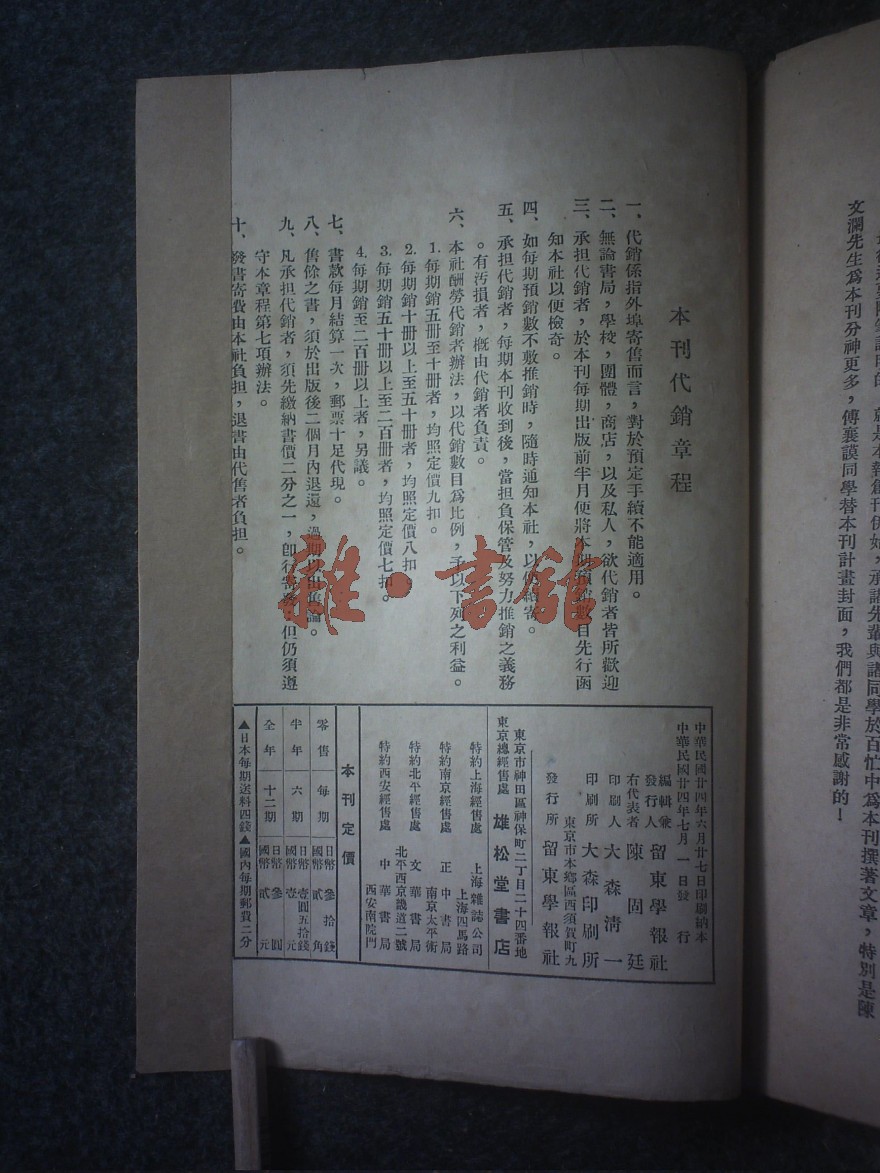 文瀾先生爲本刊分神更多，傅襄謨同學替本刊計畫封面，我們都是非常感謝的！
本刊代銷章程
一、代銷係指外埠寄售而言，對於預定手續不能適用。
二、無論書局，學校，團體，商店，以及私人，欲代銷者皆所歡迎
三、承担代銷者，於本刊每期出版前半月便將本期預銷數目先行函
知本社以便檢寄。
四、如每期預銷數不敷推銷時，隨時通知本社，以便添寄。
五、承担代銷者，每期本刊收到後，當担負保管及努力推銷之義務
。有汚損者，概由代銷者負責。
六、本社酬勞代銷者辦法，以代銷數目爲比例，予以下列之利益。
1.每期銷五册至十册者，均照定價九扣。
2.每期銷十册以上至五十册者，均照定價八扣
3.每期銷五十册以上至二百册者，均照定價七扣。
4.每期銷至二百册以上者，另議。
七、書款每月結算一次，郵票十足代現。
八、售餘之書，須於出版後二個月內退還，過期以出售論。
九、凡承担代銷者，須先繳納書價二分之一，卽行寄發，但仍須遵
守本章程第七項辦法。
十、發書寄費由本社負担，退書由代售者負担。
中華民國廿四年六月廿七日印刷納本
中華民國廿四年七月一日發行
編輯兼發行人 留東學報社
右代表者 陳固廷
印刷人 大森淸一
印刷所 大森印刷所
東京市本鄉區西須賀町九
發行所 留東學報社
東京市神田區神保町二丁目二十四番地
東京總經售處 雄松堂書店
特約上海經售處 上海雜誌公司
上海四馬路
特約南京經售處 正中書局
南京太平術
特約北平經售處 文華書局
北平西京畿道二號
特約西安經售處 中華書局
西安南院門
本刊定價
零售 每期 日幣參拾錢 國幣貳角
半年 六期 日幣壹圓五拾錢 國幣壹元
全年 十二期 日幣參圓 國幣貳元
▲日本每期送料四錢▲國內每期郵費二分
雜·書館